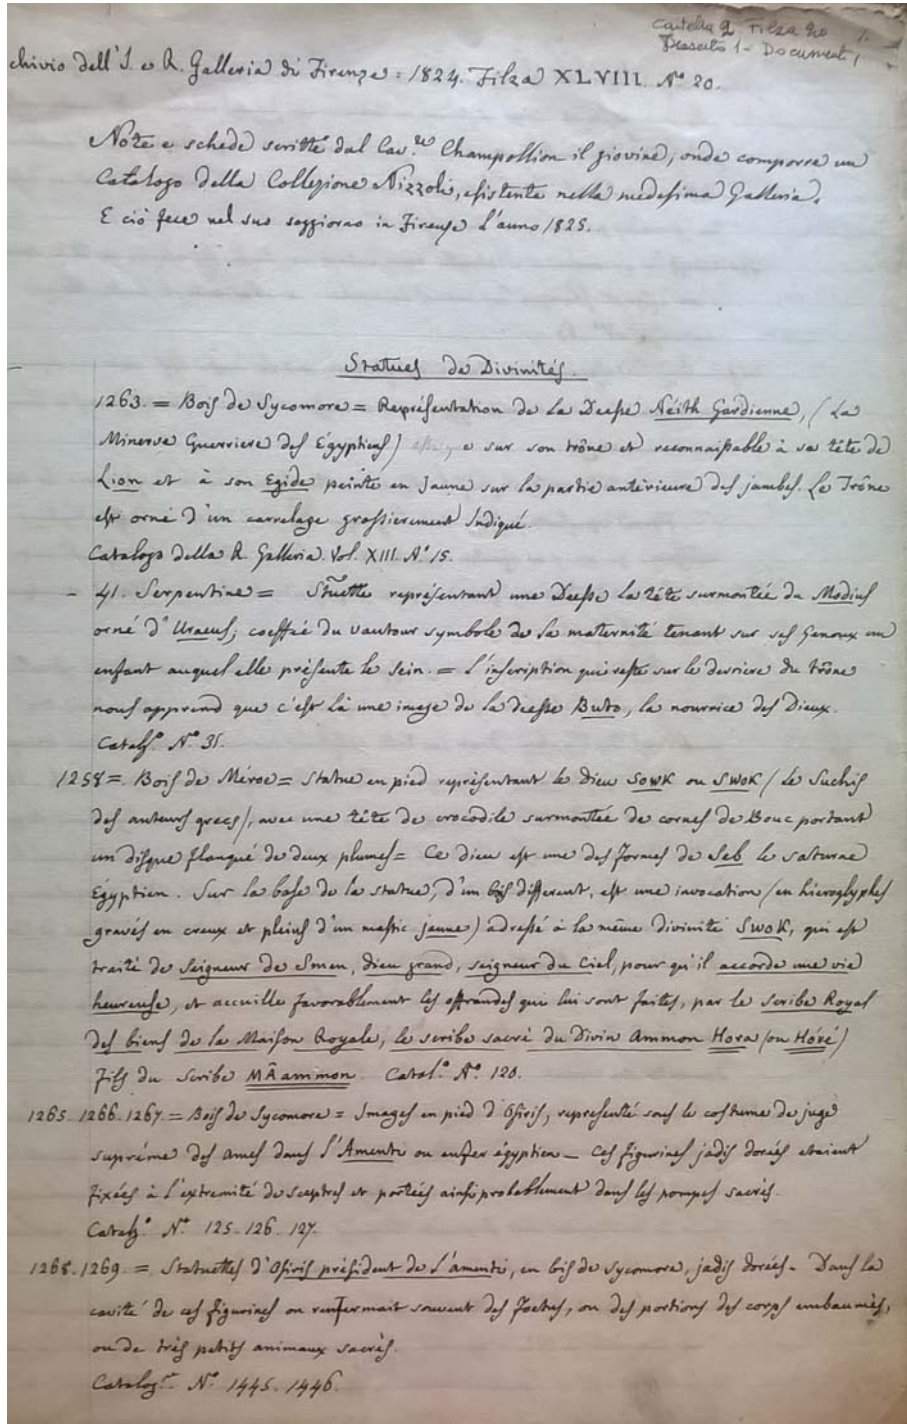 Cartella 2 Filza 20
Inserto 1 - Documenti 1
chivio dell'I. e R. Galleria di Firenze = 1824. Filza XLVIII. N.° 20.
Note e schede scritte dal Cav.re Champollion il giovine, onde comporre un
Catalogo della Collezione Nizzoli, esistente nella medesima Galleria.
E ciò fece nel suo soggiorno in Firenze l'anno 1825.
Statues de Divinités.
1263. = Bois de Sycomore = Représentation de la Deesse Néith Gardienne, (La
Minerve Guerriere des Égyptiens) sur son trône et reconnaissable à sa tête de
Lion et à son Egide peinte en Jaune sur la partie antérieure des jambes. Le Trône
est orné d'un carrelage grossierement Indiqué.
Catalogo della R. Galleria. Vol. XIII. N.° 15.
- 41. Serpentine = Stuette représentant une Deesse la tête surmontée du Modius
orné d'Uraeus; coeffée du vautour symbole de la maternité tenant sur ses Genoux un
enfant auquel elle présente le sein. = l'inscription qui reste sur le derriere du trône
nous apprend que c'est là une image de la deesse Buto, la nourrice des Dieux.
Catalg.° N.° 31.
1258 = Bois de Méroe = Statue en pied représentant le Dieu Sowk ou Swok (le Suchis
des auteurs grecs), avec une tête de crocodile surmontée de cornes de Bouc portant
un disque flanqué de deux plumes = Ce dieu est une des formes de Seb le saturne
Égyptien. Sur la base de la statue, d'un bois different, est une invocation (en hieroglyphes
gravés en creux et pleins d'un mastic jaune) adressé à la même divinité Swok, qui est
traité de Seigneur de Smen, Dieu grand, seigneur du Ciel, pour qu'il accorde une vie
heureuse, et accuille favorablement les offrandes qui lui sont faites, par le scribe Royal
des biens de la Maison Royale, le scribe sacré du Divin Ammon Hora (ou Hôré)
fils du Scribe MÂammon. Catal.° N.° 120.
1265. 1266. 1267. = Bois de Sycomore = Images en pied d'Osiris, representé sous le costume de juge
suprême des ames dans l'Amenti ou enfer égyptien — Ces figurines jadis dorées etaient
fixées à l'extremité de sceptres et portées ainsi probablement dans les pompes sacrés.
Catalg.° N.° 125. 126. 127.
1268. 1269. = Statuettes d'Osiris président de l'amenti, en bois de sycomore, jadis dorées - Dans la
cavité de ces figurines on renfermait souvent des foetus, ou des portions des corps embaumés,
ou de très petits animaux sacrés.
Catalog. N.° 1445. 1446.